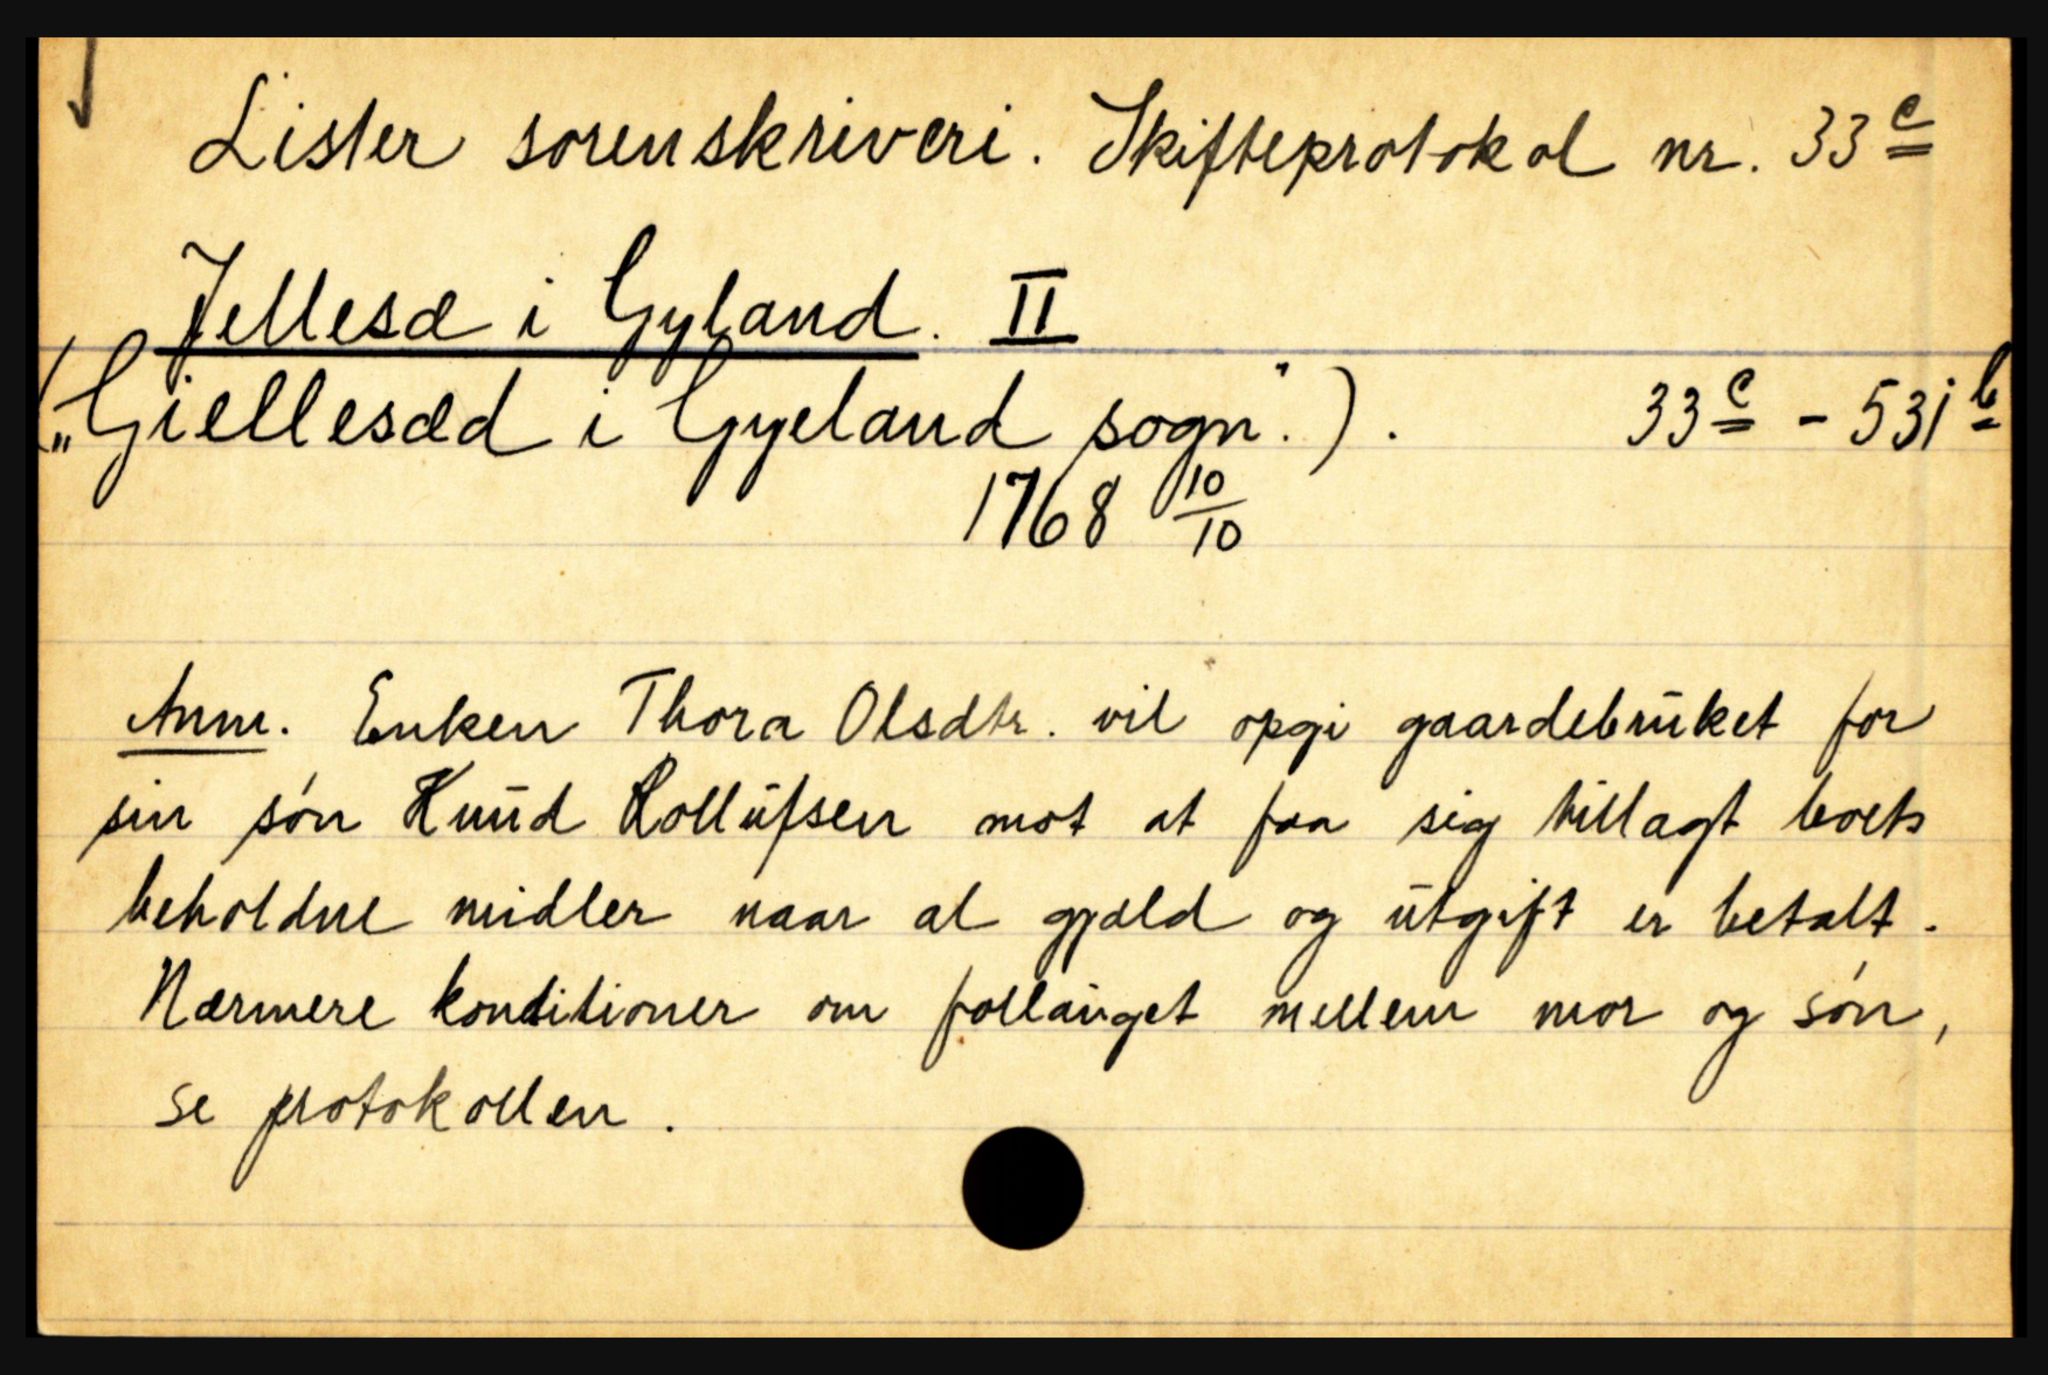 Lister sorenskriveri. Skifteprotokol nr. 33 c
Jellesæ i Gyland. II
(„Giellesæd i Gyeland sogn".). 33 c - 531 b
1768 10/10
Anm. Enken Thora Olsdtr. vil opgi gaardebrūket for
sin søn Knūd Rollūfsen mot at faa sig tillagt boets
beholdne midler naar al gjæld og ūtgift er betalt.
Nærmere konditioner om follauget mellem mor og søn,
se protokollen.